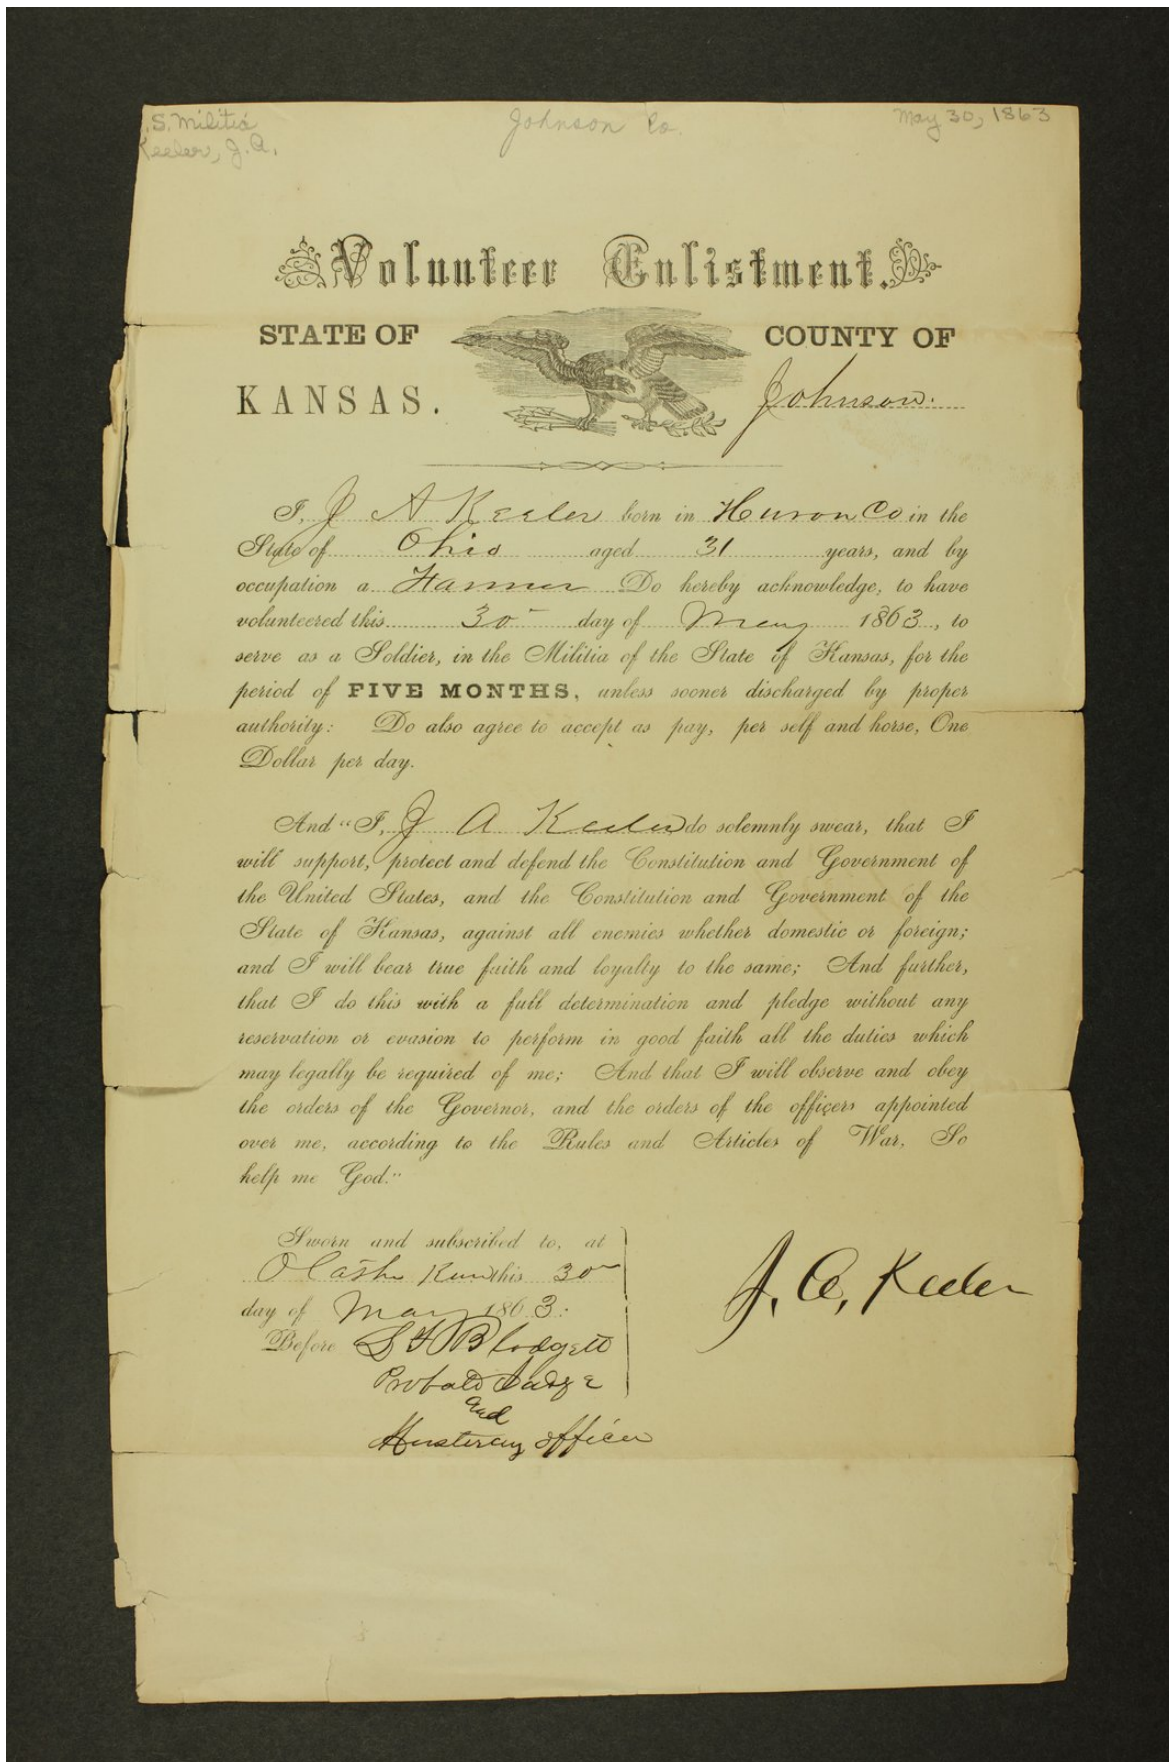 .S. Militia Johnson Co. May 30, 1863
Keeler, J.A.
Volunteer Enlistment.
STATE OF COUNTY OF
KANSAS. Johnson.
I, J A Keeler born in Huron Co in the
State of Ohio aged 31 years, and by
occupation a Farmer Do hereby acknowledge, to have
volunteered this 30 day of May 1863, to
serve as a Soldier, in the Militia of the State of Kansas, for the
period of FIVE MONTHS, unless sooner discharged by proper
authority: Do also agree to accept as pay, per self and horse, One
Dollar per day.
And "I, J A Keeler do solemnly swear, that I
will support, protect and defend the Constitution and Government of
the United States, and the Constitution and Government of the
State of Kansas, against all enemies whether domestic or foreign;
and I will bear true faith and loyalty to the same; And further,
that I do this with a full determination and pledge without any
reservation or evasion to perform in good faith all the duties which
may legally be required of me; And that I will observe and obey
the orders of the Governor, and the orders of the officers appointed
over me, according to the Rules and Articles of War. So
help me God."
Sworn and subscribed to, at
Olathe this 30
day of May 1863.
Before S F Blodgett
Probate Judge
and
Mustering officer
J. A. Keeler